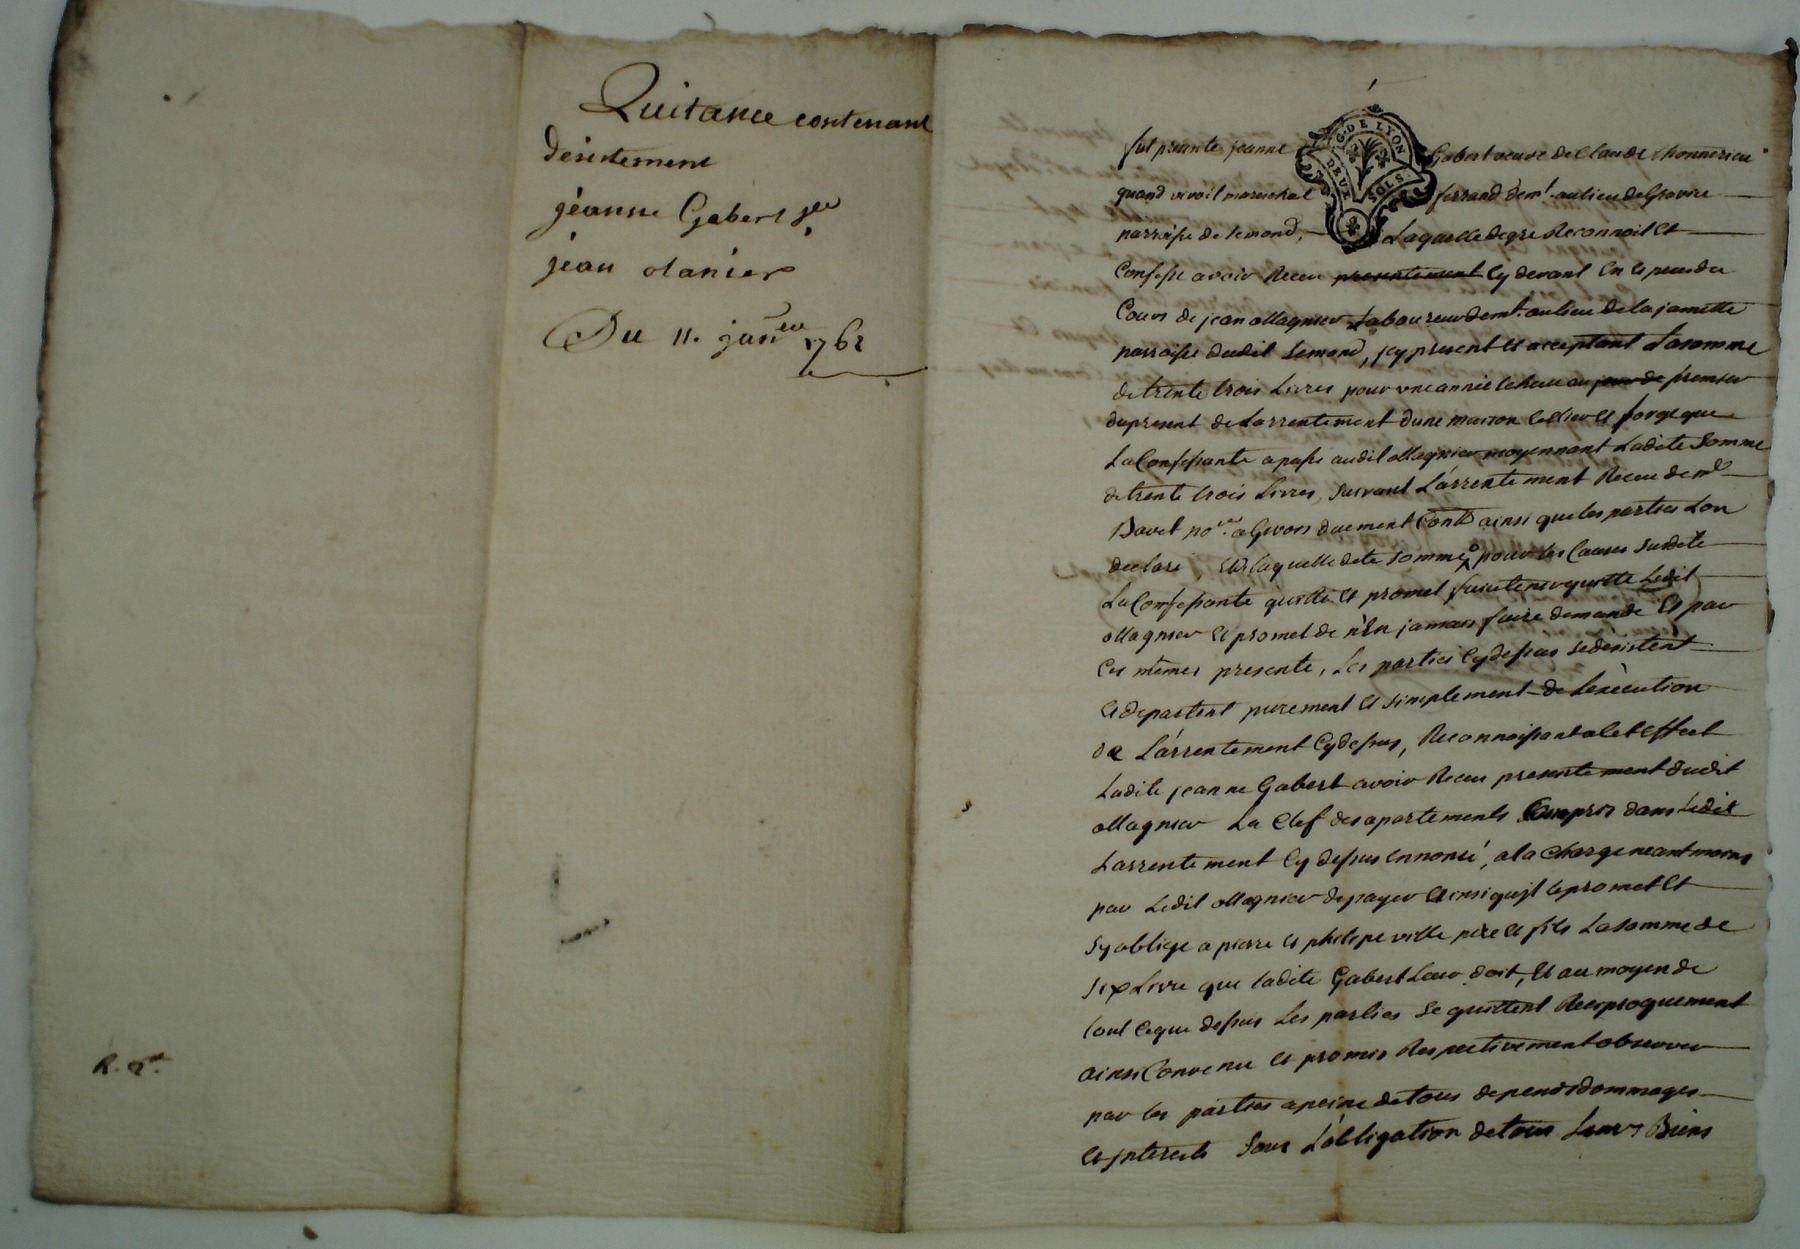 Quitance contenant
desistement
jéanne Gabert
jean olanier
Du 11. janvier 1762
R. 2.
G. DE LYON
DEUX SOLS
fut presente jeanne Gabert veuve de Claude
quand vivoit marechal ferrand demt. au lieu de
parroisse de semond, Laquelle de gré Reconnoit et
Confesse avoir Receu presentement cy devant en especes du
Cours de jean ollagnier Laboureur demt. au lieu de la jamette
parroisse dudit semond, jcy present et acceptant La somme
de trente trois Livres pour une année echeue au jour de premier
du present de Larrentement dune maison cellier et forge que
La Confessante a passé audit ollagnier moyennant Ladite Somme
de trente trois Livres, suivant L'arrentement Receu de me
Bavet nore. a Givors duement Contlé ainsi que les parties L'on
declaré, de laquelle dite somme pour les Causes susdite
La Confessante quitte et promet faire tenir quitte Ledit
ollagnier et promet de n'En jamais faire demande et par
Ces mêmes presente, Les parties Cy dessus se desistent
et departent purement et simplement de Lexécution
de L'arrentement Cy dessus, Reconnoissant a Cet Effect
Ladite jeanne Gabert avoir Receu presentement dudit
ollagnier La Clef des apartements Compris dans Ledit
Larrentement Cy dessus ennoncé, a la Charge neantmoins
par Ledit ollagnier de payer ainsi qu'jl le promet et
sy oblige a pierre et philipe ville pere et fils La somme de
six Livre que ladite Gabert Leur doit, et au moyen de
tout Ceque dessus Les parties se quittent Reciproquement
ainsi Convenu et promis Respectivement observer
par les parties a peine de tous depends dommages
et jnterests sous L'obligation de tous Leurs Biens